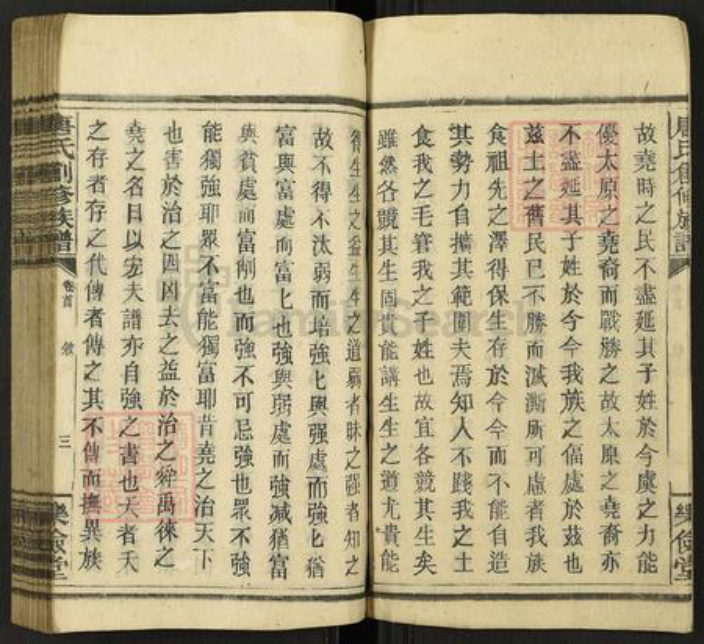 故堯時之民不盡延其子姓於今虞之力能
優太原之堯裔而戰勝之故太原之堯裔亦
不盡延其子姓於今今我族之偪處於茲也
茲土之舊民已不勝而滅澌所可慮者我族
食祖先之澤得保生存於今今而不能自造
其勢力自擴其範圍夫焉知人不踐我之土
食我之毛管我之子姓也故宜各競其生矣
雖然各競其生固貴能講生生之道尤貴能
得生生之益生生之道弱者昧之强者知之
故不得不汰弱而培強匕與强處而強匕猶
富與富處而富匕也強與弱處而強減猶富
與貧處而富削也而強不可忌強也眾不強
能獨強耶眾不富能獨富耶昔堯之治天下
也害於治之四凶去之益於治之舜禹徠之
堯之名目以宏夫譜亦自強之書也天者夭
之存者存之代傳者傳之其不傳而撫異族
唐氏創修族譜
卷首
敘
三
樂儉堂
唐氏創修族譜
樂儉堂
FamilySearch